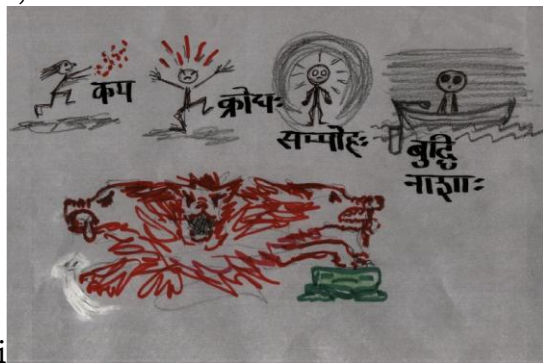 कप
क्रोधः
सम्पोहः
बुद्धि
नाशाः
i